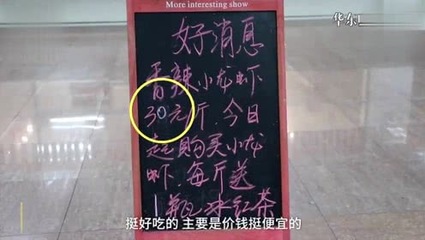 More interesting show
华东
好消息
香辣小龙虾
30元/斤.今日
起購买小龙
虾.每斤送
1瓶冰红茶
挺好吃的 主要是价钱挺便宜的